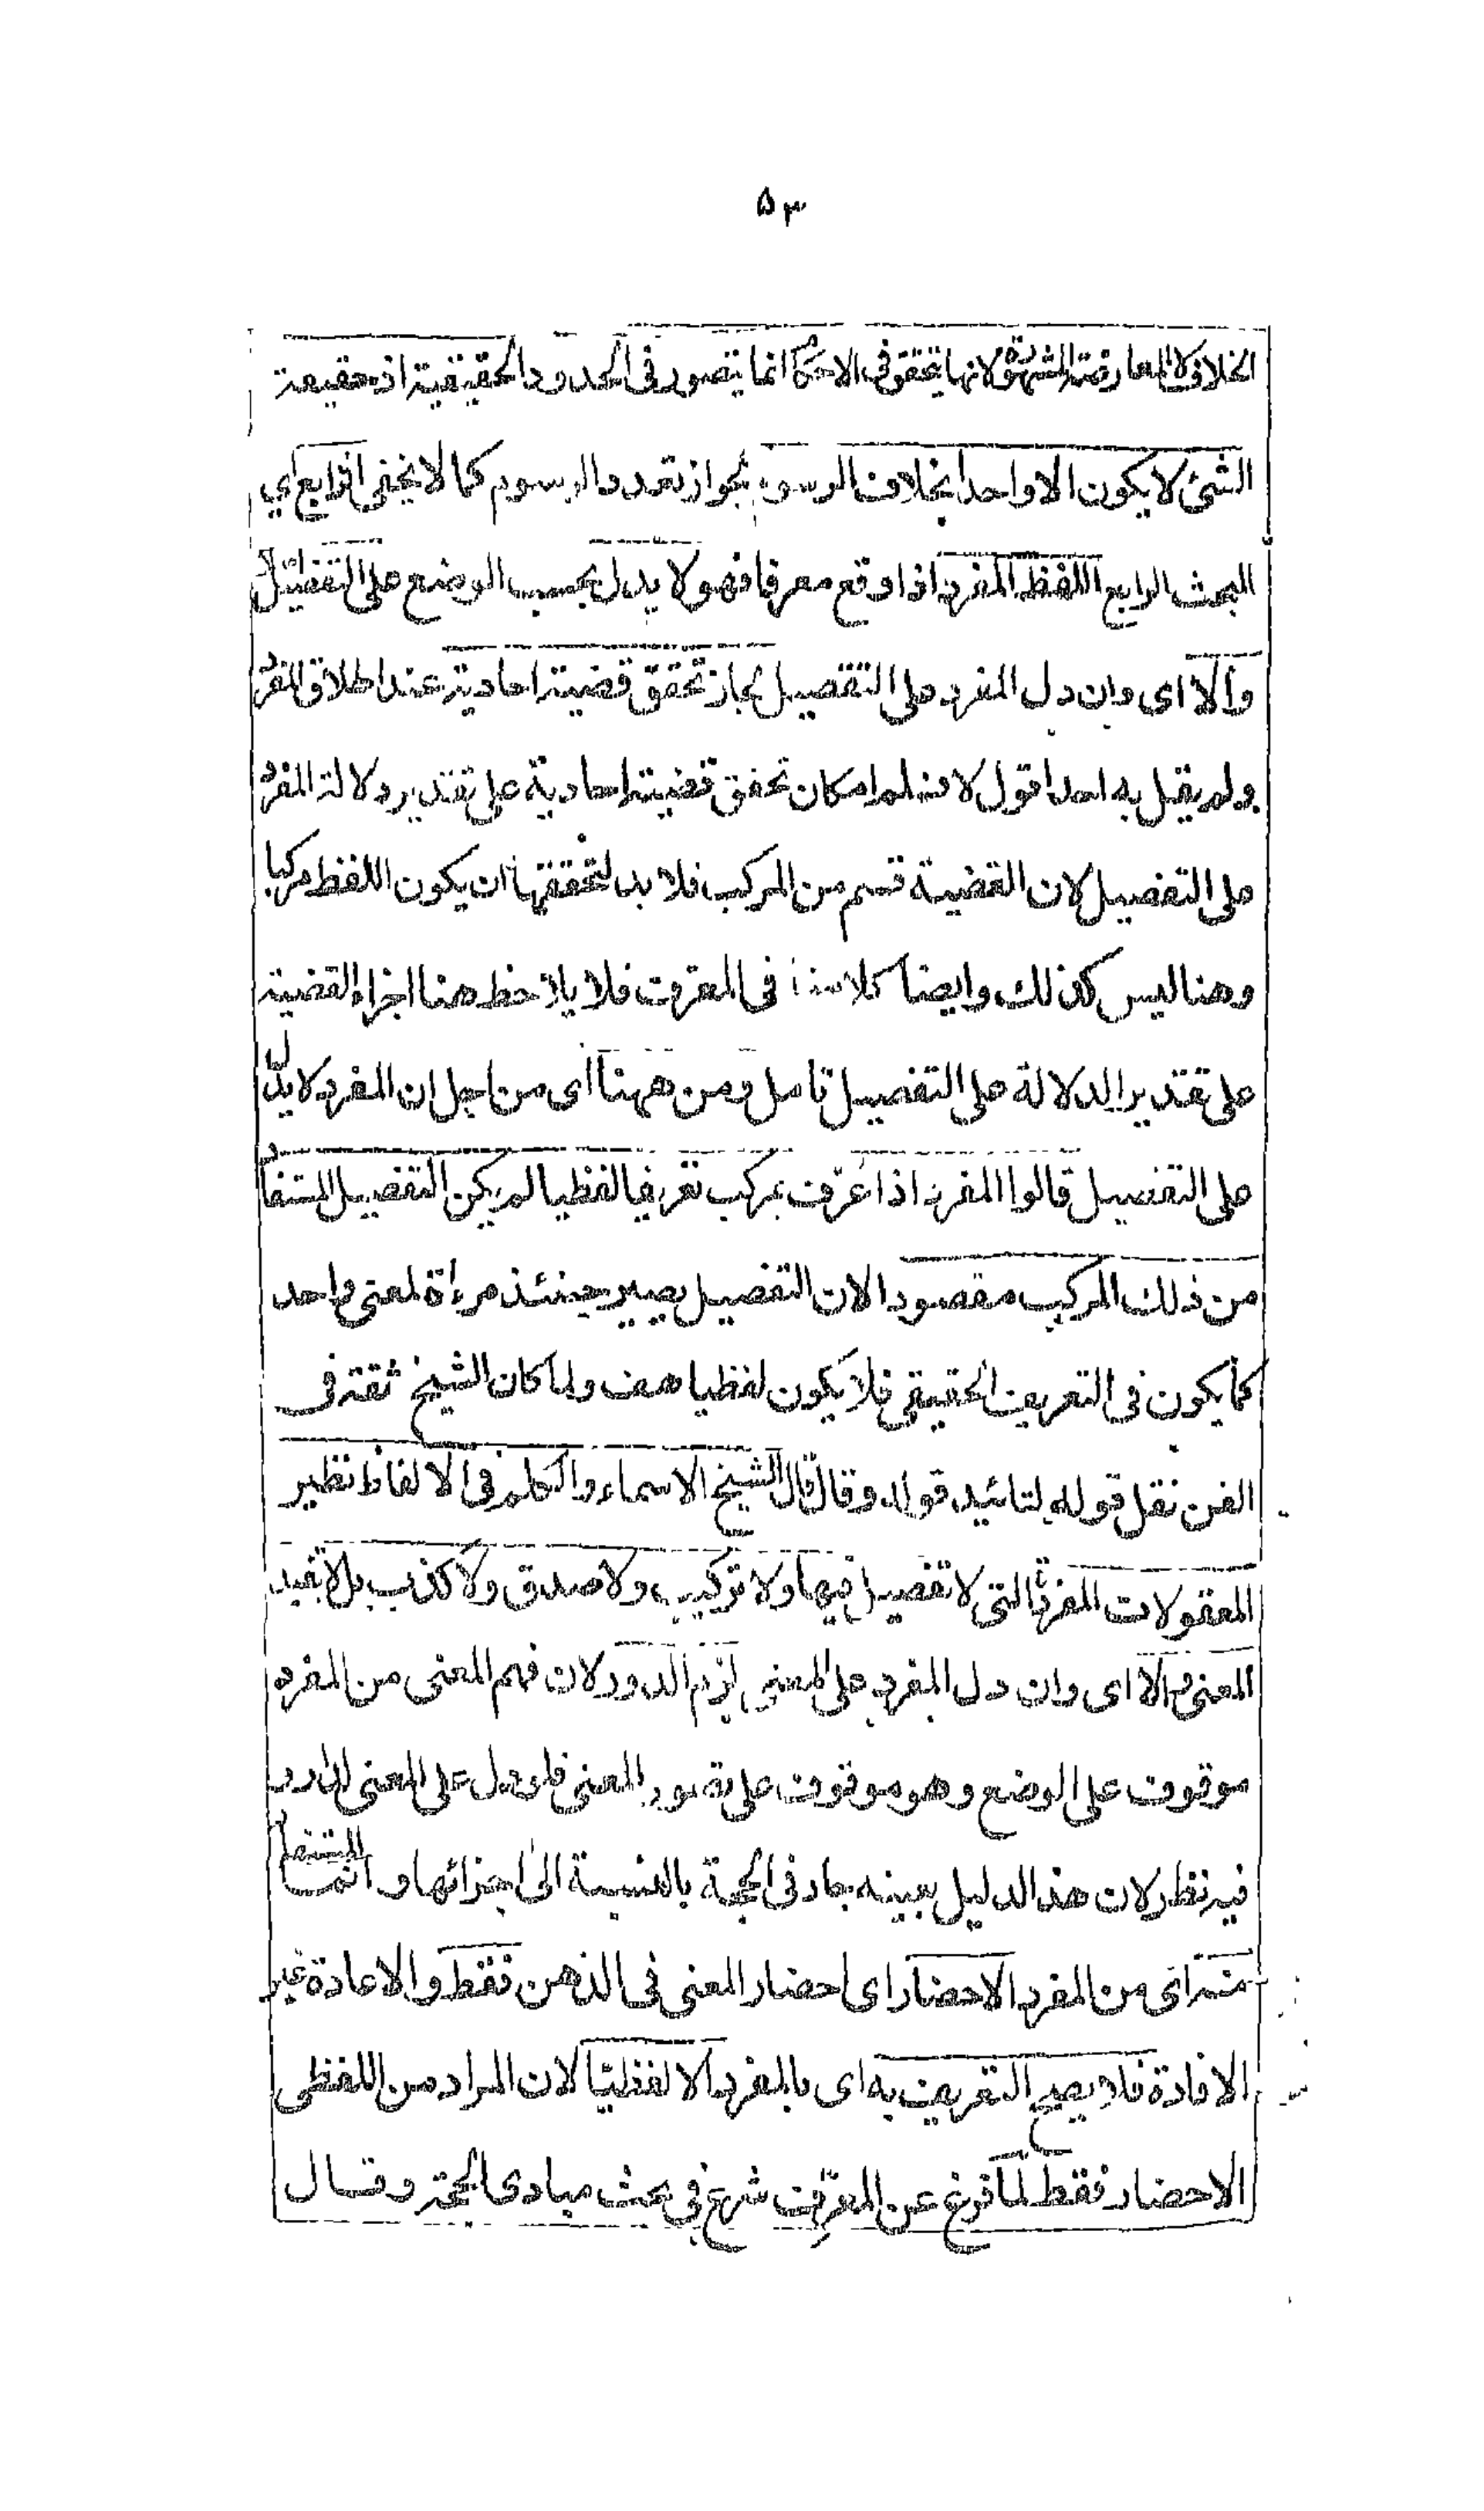 ٥٣
الخلاف لا المعارضة المشهورة لانها يتحقق في الاحكام انما يتصور فى الحدود الحقيقية اذ حقيقة
الشئ لا يكون الا واحدا بخلاف الرسوم لجواز تعدد الرسوم كما لا يخفى الرابع اي
البحث الرابع اللفظ المفرد اذا وقع معرفا فهو لا يدل بحسب الوضع على التفصيل
والا اى وان دل المفرد على التفصيل لجاز تحقق قضية احادية عند اطلاق المفرد
ولم يقل به احد اقول لا نسلم امكان تحقق قضية احادية على تقدير دلالة المفرد
على التفصيل لان القضية قسم من المركب فلا بد لتحققها ان يكون اللفظ مركبا
وهنا ليس كذلك وايضا كلامنا فى المعرف فلا يلاحظ هنا اجزاء القضية
على تقدير الدلالة على التفصيل تامل ومن ههنا اى من اجل ان المفرد لا يدل
على التفصيل قالوا المفرد اذا عُرّف بمركب تعريفا لفظيا لم يكن التفصيل المستفاد
من ذلك المركب مقصودا لان التفصيل يصير حينئذ مرءاة لمعنى واحد
كما يكون فى التعريف الحقيقي فلا يكون لفظيا هف ولما كان الشيخ ثقة فى
الفن نقل قوله لتائيد قوله وقال قال الشيخ الاسماء والكلم فى الالفاظ نظير
المعقولات المفردة التى لا تفصيل فيها ولا تركيب ولا صدق ولا كذب بل لا تفيد
المعنى والا اى وان دل المفرد على المعنى لزم الدور لان فهم المعنى من المفرد
موقوف على الوضع وهو موقوف على تصور المعنى فلو دل على المعنى لدار
فيه نظر لان هذا الدليل بعينه جار فى الحجة بالنسبة الى اجزائها وانما المستفاد
منه اى من المفرد الاحضار اى احضار المعنى فى الذهن فقط والاعادة غير
الافادة فلا يصح التعريف به اى بالمفرد الا لفظيّا لان المراد من اللفظى
الاحضار فقط لما فرغ عن المعرّف شرع فى بحث مبادى الحجة وقال